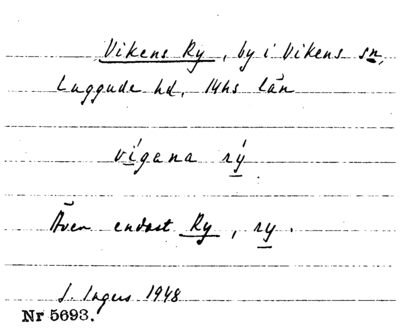 Vikens Ry, by i Vikens sn,
Luggude hd. Mhs län
vígana rý
Även endast Ry, ry.
J. Ingers 1948
Nr 5693.